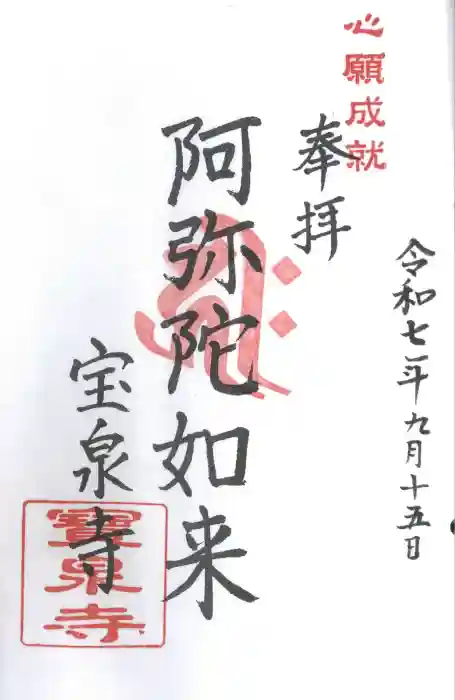 心願成就
奉拝
令和七年九月十五日
阿弥陀如来
宝泉寺
寶泉寺